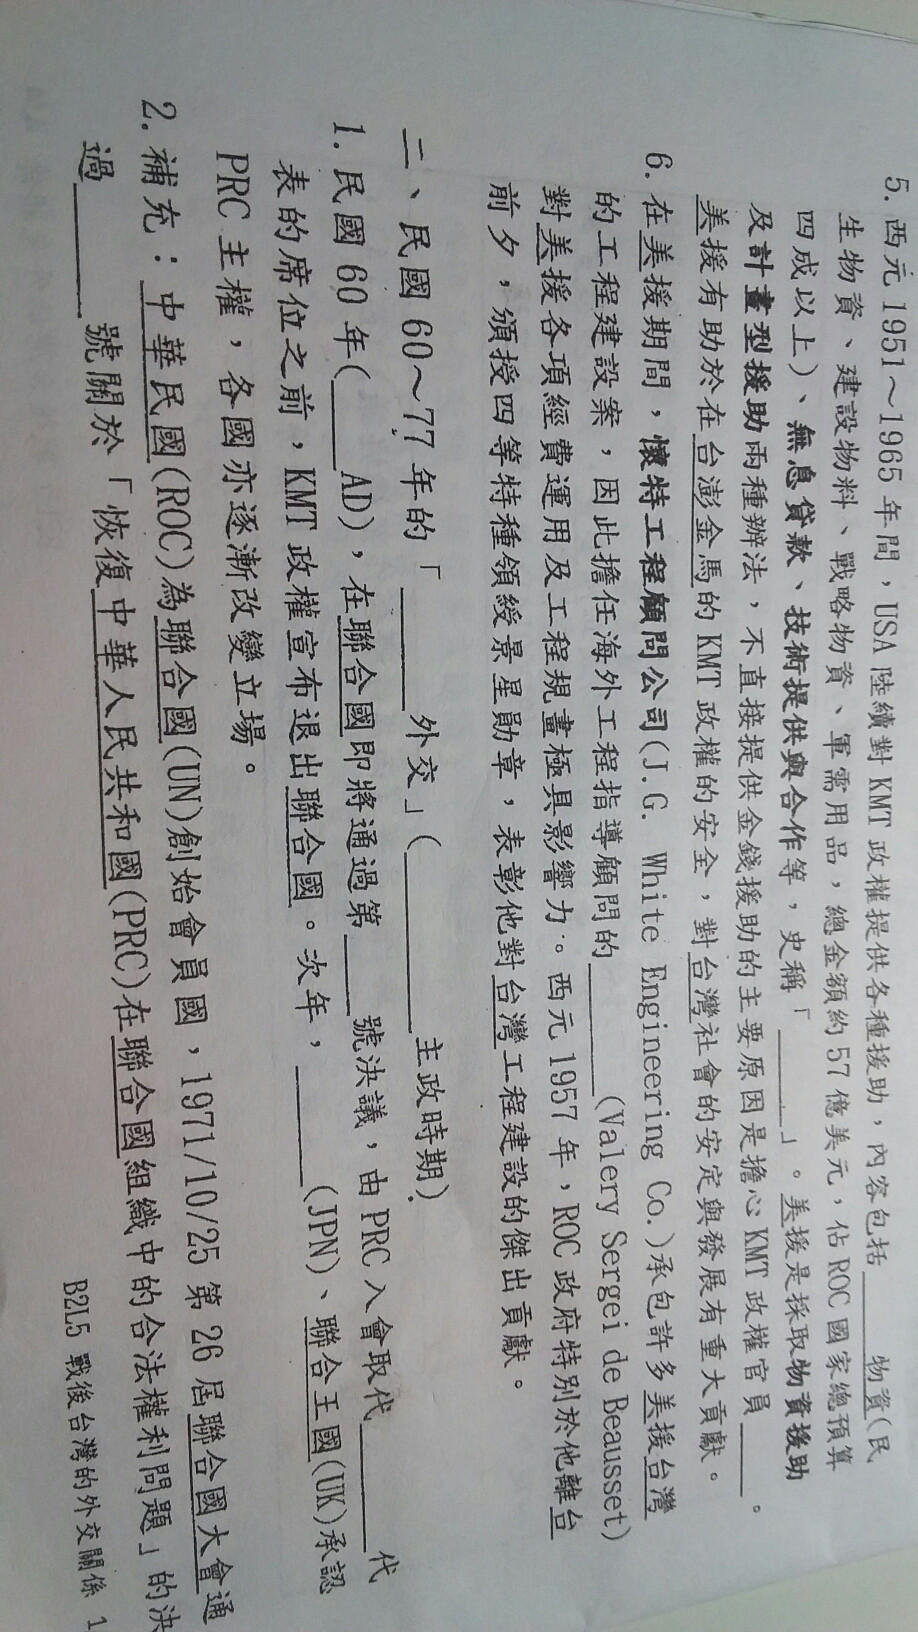 5. 西元 1951～1965 年間，USA 陸續對 KMT 政權提供各種援助，內容包括______物資(民
生物資、建設物料、戰略物資、軍需用品，總金額約 57 億美元，佔 ROC 國家總預算
四成以上)、無息貸款、技術提供與合作等，史稱「______」。美援是採取物資援助
及計畫型援助兩種辦法，不直接提供金錢援助的主要原因是擔心 KMT 政權官員______。
美援有助於在台澎金馬的 KMT 政權的安全，對台灣社會的安定與發展有重大貢獻。
6. 在美援期間，懷特工程顧問公司(J.G. White Engineering Co.)承包許多美援台灣
的工程建設案，因此擔任海外工程指導顧問的________(Valery Sergei de Beausset)
對美援各項經費運用及工程規畫極具影響力。西元 1957 年，ROC 政府特別於他離台
前夕，頒授四等特種領綬景星勛章，表彰他對台灣工程建設的傑出貢獻。
二、民國 60～77 年的「______外交」(________主政時期)
1. 民國 60 年(____AD)，在聯合國即將通過第____號決議，由 PRC 入會取代______代
表的席位之前，KMT 政權宣布退出聯合國。次年，______(JPN)、聯合王國(UK)承認
PRC 主權，各國亦逐漸改變立場。
2. 補充：中華民國(ROC)為聯合國(UN)創始會員國，1971/10/25 第 26 屆聯合國大會通
過______號關於「恢復中華人民共和國(PRC)在聯合國組織中的合法權利問題」的決
B2L5 戰後台灣的外交關係 1